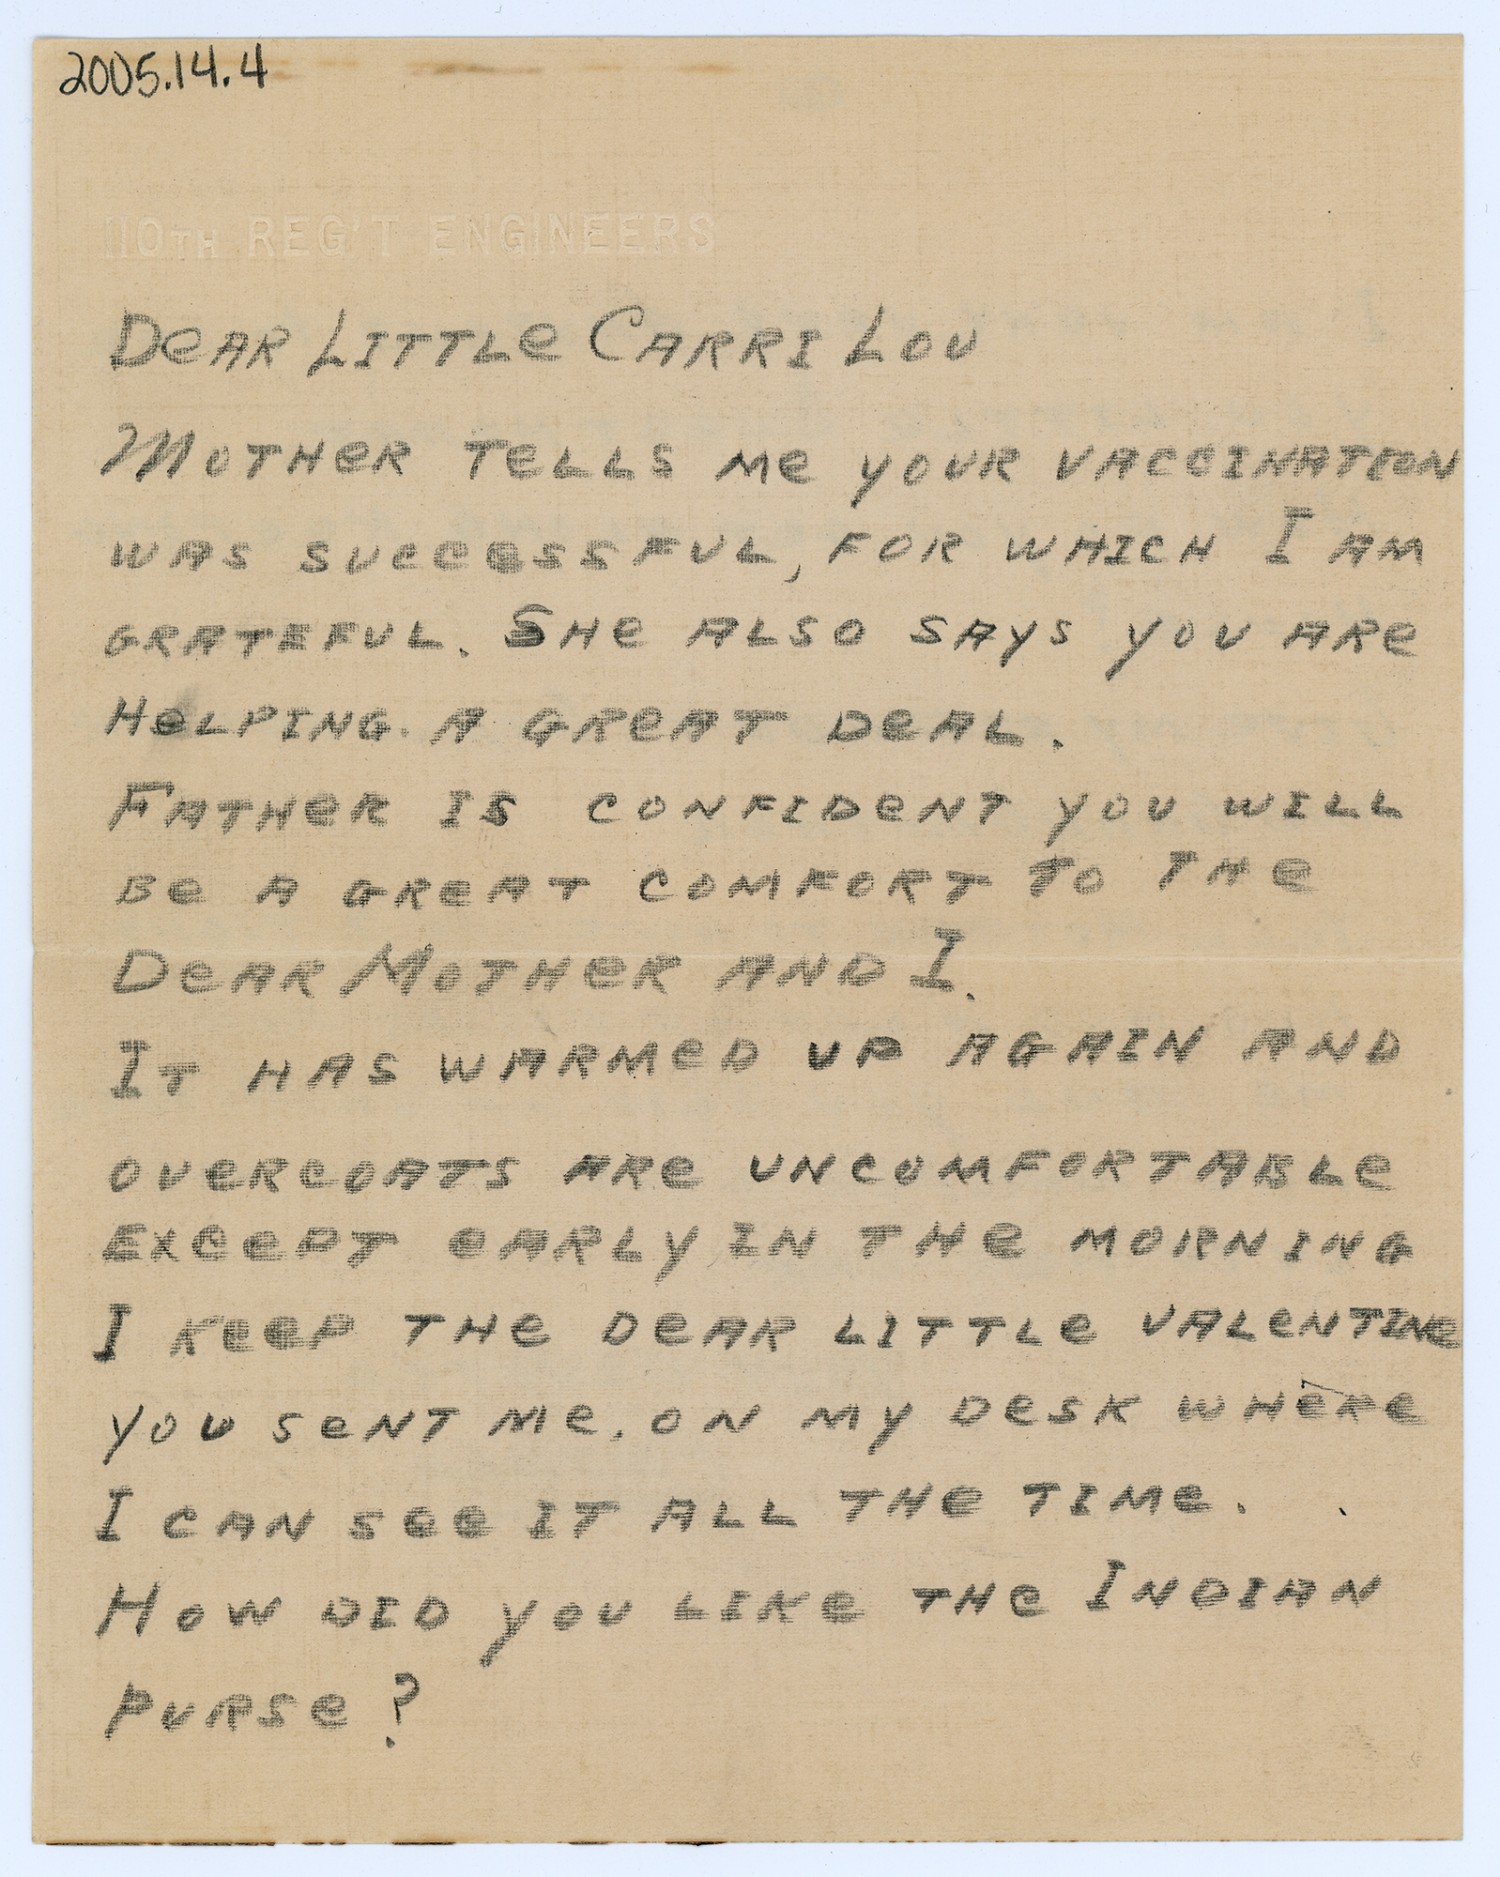 2005.14.4
110TH REG'T ENGINEERS
DeAR LITTLe CARRI LOU
MOTHeR TeLLS Me YOUR VACCINATION
WAS SUCCeSSFUL, FOR WHICH I AM
GRATEFUL. SHe ALSO SAYS YOU ARe
HeLPING. A GReAT DeAL.
FATHeR IS CONFIDeNT YOU WILL
Be A GReAT COMFORT TO THe
DeAR MOTHeR AND I.
IT HAS WARMeD UP AGAIN AND
OVeRCOATS ARe UNCOMFORTABLe
EXCePT eARLY IN THe MORNING
I KeeP THe DeAR LITTLe VALeNTINe
YOU SeNT Me. ON MY DeSK WHeRe
I CAN See IT ALL THe TIMe.
HOW DID YOU LIKe THe INDIAN
PURSe?